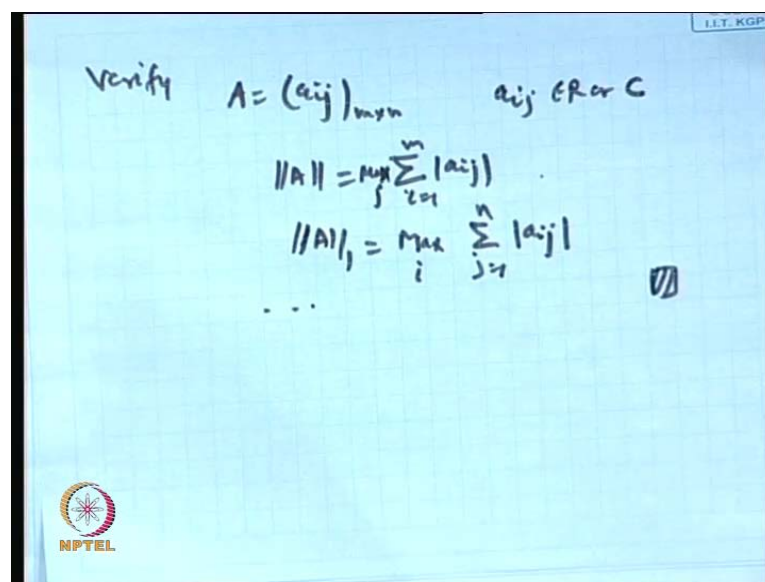 I.I.T. KGP
Verify A = (aij)m×n aij ∈ R or C
||A|| = Max j ∑ i=1 m |aij|
||A||1 = Max i ∑ j=1 n |aij|
...
NPTEL